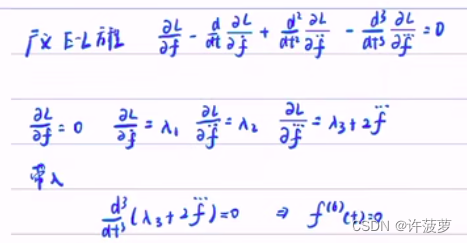 广义 E-L方程 ∂L/∂f - d/dt ∂L/∂ḟ + d²/dt² ∂L/∂f̈ - d³/dt³ ∂L/∂f⃛ = 0
∂L/∂f = 0 ∂L/∂ḟ = λ₁ ∂L/∂f̈ = λ₂ ∂L/∂f⃛ = λ₃ + 2f⃛
带入
d³/dt³ (λ₃ + 2f⃛) = 0 ⇒ f⁽⁶⁾(t) = 0
CSDN @许菠萝